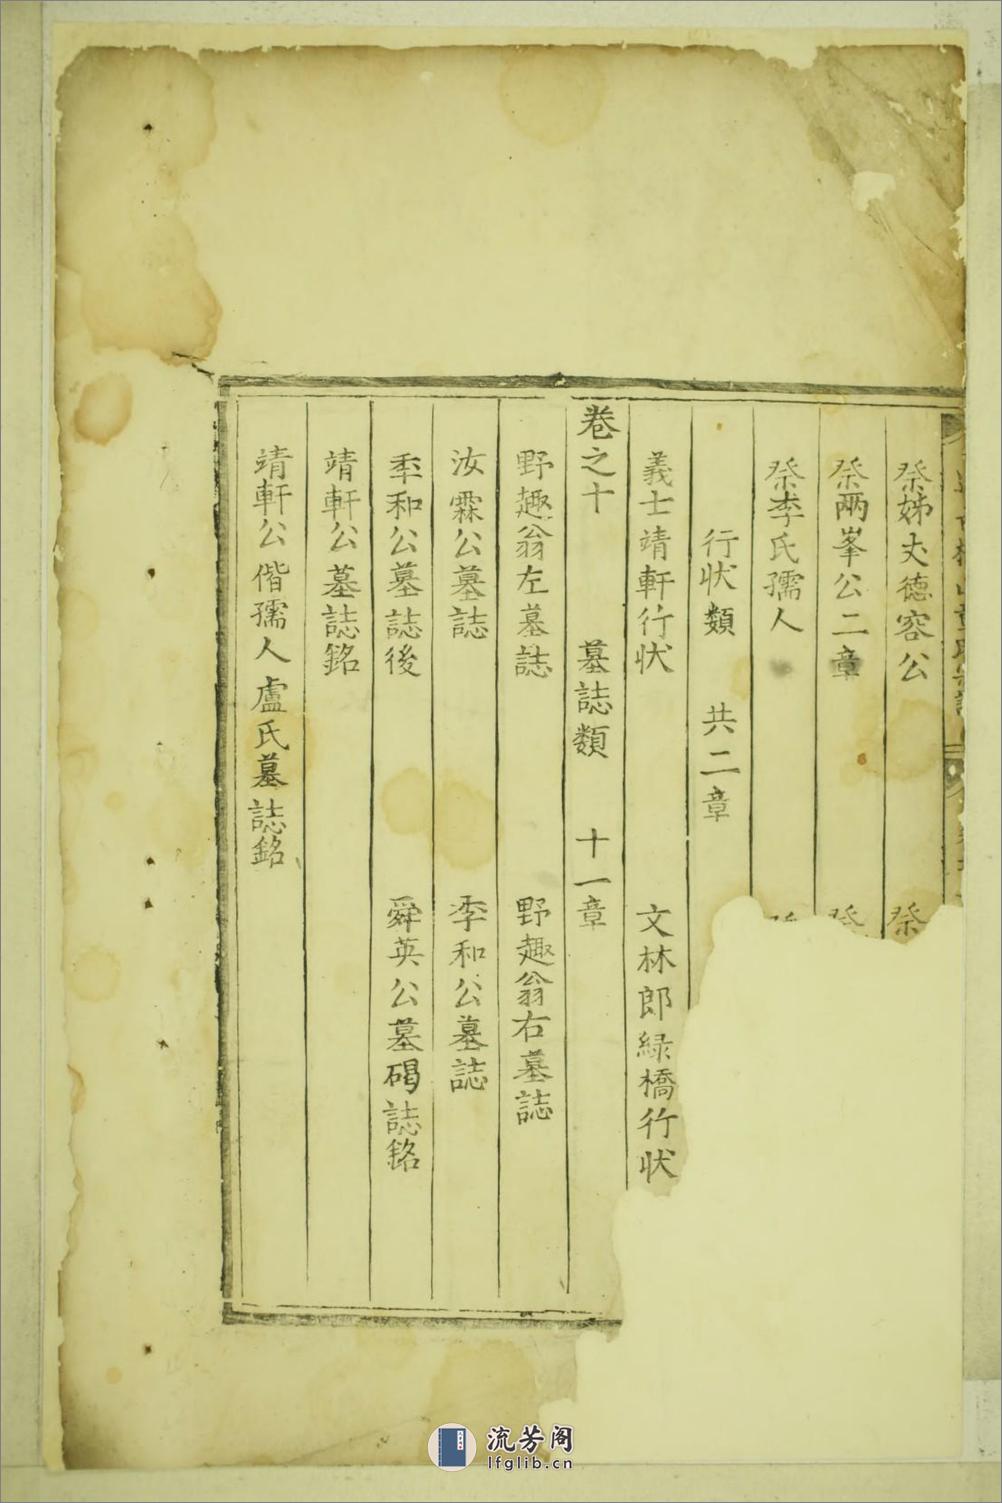 祭姊丈德容公　祭
祭兩峯公二章　祭
祭李氏孺人
行状類　共二章
義士靖軒行状　文林郎緑橋行状
卷之十　墓誌類　十一章
野趣翁左墓誌　野趣翁右墓誌
汝霖公墓誌　季和公墓誌
季和公墓誌後　舜英公墓碣誌銘
靖軒公墓誌銘
靖軒公偕孺人盧氏墓誌銘
流芳阁
lfglib.cn